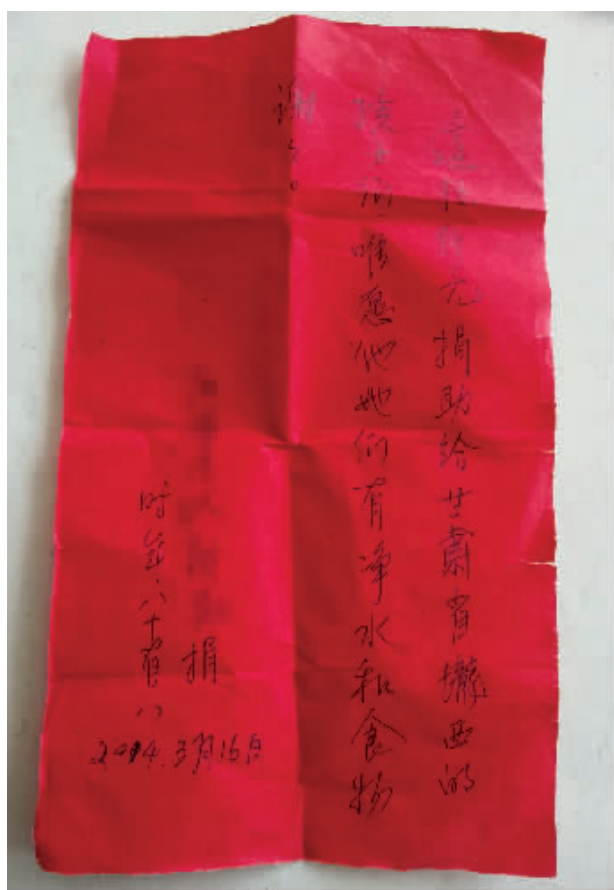 元捐助给甘肃省壠西的
孩子们唯愿他她们有净水和食物
谢谢
捐
时年六十有八
2014.3月16日